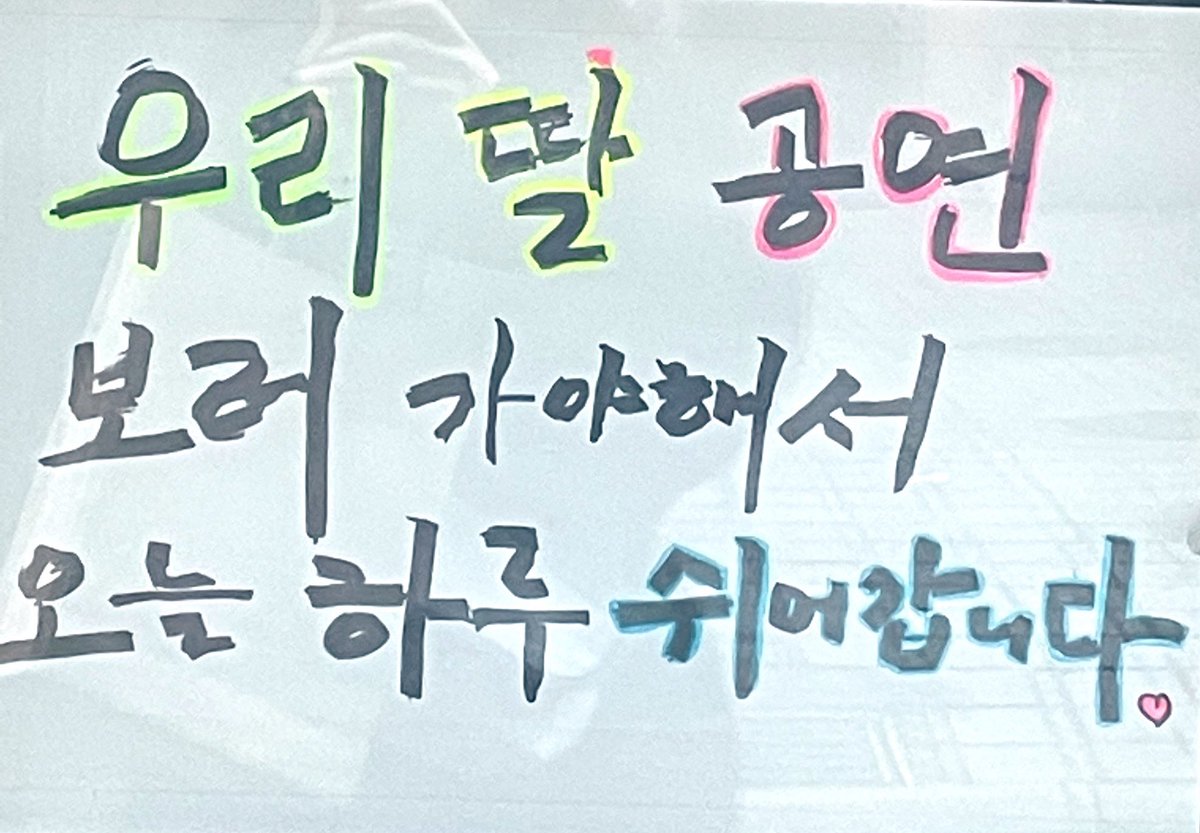 우리 딸 공연
보러 가야해서
오늘 하루 쉬어갑니다